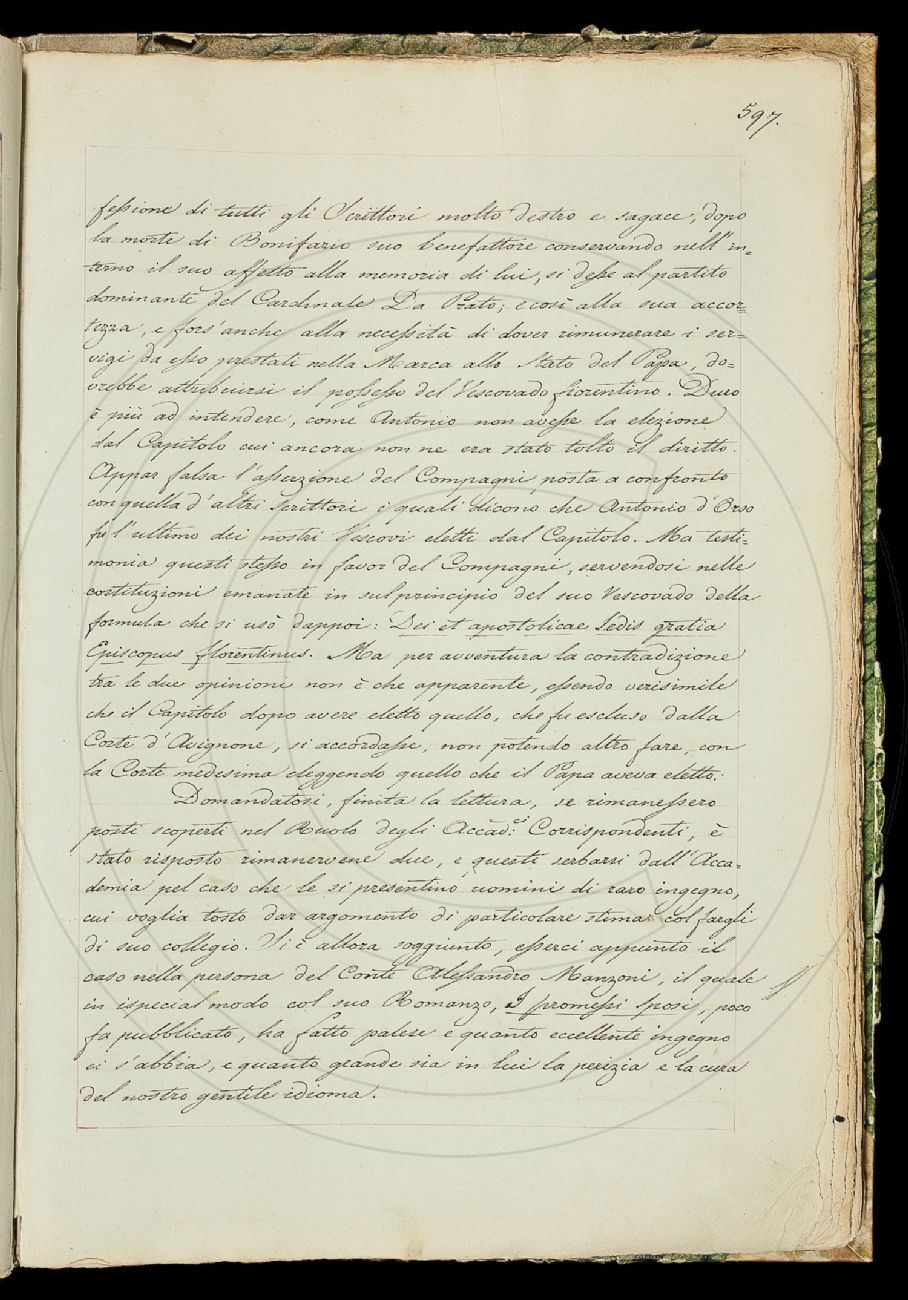 597.
fessione di tutti gli Scrittori molto destro e sagace, dopo
la morte di Bonifazio suo benefattore conservando nell'in=
terno il suo affetto alla memoria di lui, si desse al partito
dominante del Cardinale Da Prato; e così alla sua accor=
tezza, e fors'anche alla necessità di dover rimunerare i ser=
vigi da esso prestati nella Marca allo Stato del Papa, do=
vrebbe attribuirsi il possesso del Vescovado fiorentino. Duro
è più ad intendere, come Antonio non avesse la elezione
dal Capitolo cui ancora non ne era stato tolto il diritto.
Appar falsa l'asserzione del Compagni, posta a confronto
con quella d'altri Scrittori i quali dicono che Antonio d'Orso
fu l'ultimo dei nostri Vescovi eletti dal Capitolo. Ma testi=
monia questi stesso in favor del Compagni, servendosi nelle
costituzioni emanate in sul principio del suo Vescovado della
formula che si usò dappoi: Dei et apostolicae Sedis gratia
Episcopus florentinus. Ma per avventura la contradizione
tra le due opinioni non è che apparente, essendo verisimile
che il Capitolo dopo avere eletto quello, che fu escluso dalla
Corte d'Avignone, si accordasse, non potendo altro fare, con
la Corte medesima eleggendo quello che il Papa aveva eletto.
Domandatosi, finita la lettura, se rimanessero
posti scoperti nel Ruolo degli Accad:ci Corrispondenti, è
stato risposto rimanervene due, e questi serbarsi dall'Acca=
demia pel caso che le si presentino uomini di raro ingegno,
cui voglia tosto dar argomento di particolare stima col fargli
di suo collegio. Si è allora soggiunto, esserci appunto il
caso nella persona del Conte Alessandro Manzoni, il quale
in ispecial modo col suo Romanzo, I promessi Sposi, poco
fa pubblicato, ha fatto palese e quanto eccellente ingegno
ei s'abbia, e quanto grande sia in lui la perizia e la cura
del nostro gentile idioma.